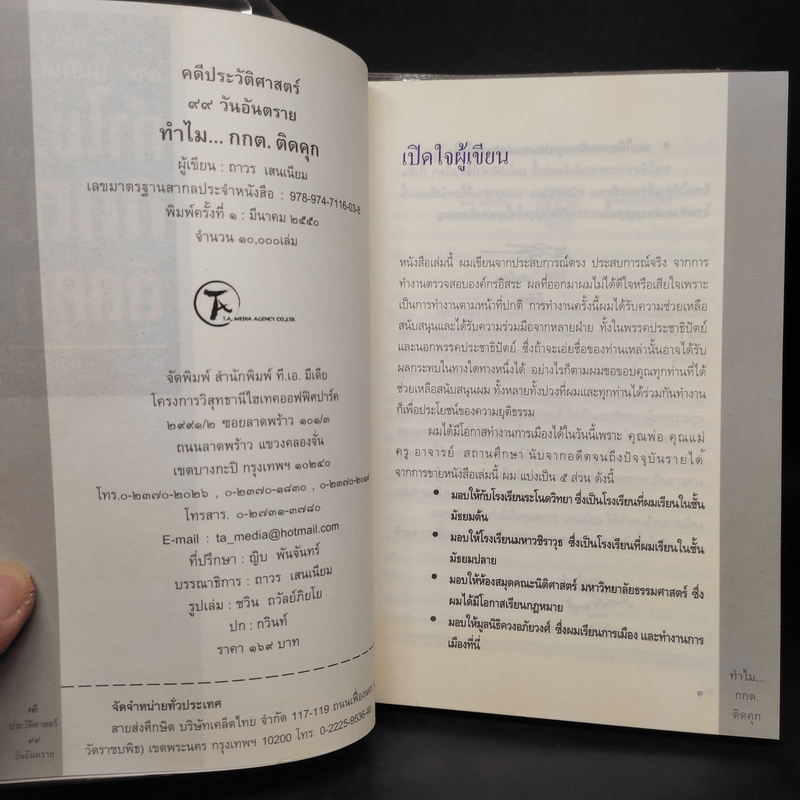 คดีประวัติศาสตร์
๙๙ วันอันตราย
ทำไม... กกต. ติดคุก
ผู้เขียน : ถาวร เสนเนียม
เลขมาตรฐานสากลประจำหนังสือ : 978-974-7116-03-8
พิมพ์ครั้งที่ ๑ : มีนาคม ๒๕๕๐
จำนวน ๑๐,๐๐๐เล่ม
T.A. MEDIA AGENCY CO.,LTD.
จัดพิมพ์ สำนักพิมพ์ ที.เอ. มีเดีย
โครงการวิสุทธานีไฮเทคออฟฟิศปาร์ค
๒๙๙๑/๒ ซอยลาดพร้าว ๑๐๑/๓
ถนนลาดพร้าว แขวงคลองจั่น
เขตบางกะปิ กรุงเทพฯ ๑๐๒๔๐
โทร.๐-๒๓๗๐-๒๐๒๖ , ๐-๒๓๗๐-๑๘๓๐ , ๐-๒๓๗๐-๒๐๙๙
โทรสาร. ๐-๒๗๓๑-๓๗๘๐
E-mail : ta_media@hotmail.com
ที่ปรึกษา : ญิบ พันจันทร์
บรรณาธิการ : ถาวร เสนเนียม
รูปเล่ม : ชวิน ถวัลย์ภิยโย
ปก : กวินท์
ราคา ๑๖๙ บาท
จัดจำหน่ายทั่วประเทศ
สายส่งศึกษิต บริษัทเคล็ดไทย จำกัด 117-119 ถนนเฟื่องนคร
วัดราชบพิธ) เขตพระนคร กรุงเทพฯ 10200 โทร. 0-2225-9536-40
คดี
ประวัติศาสตร์
๙๙
วันอันตราย
เปิดใจผู้เขียน
หนังสือเล่มนี้ ผมเขียนจากประสบการณ์ตรง ประสบการณ์จริง จากการ
ทำงานตรวจสอบองค์กรอิสระ ผลที่ออกมาผมไม่ได้ดีใจหรือเสียใจเพราะ
เป็นการทำงานตามหน้าที่ปกติ การทำงานครั้งนี้ผมได้รับความช่วยเหลือ
สนับสนุนและได้รับความร่วมมือจากหลายฝ่าย ทั้งในพรรคประชาธิปัตย์
และนอกพรรคประชาธิปัตย์ ซึ่งถ้าจะเอ่ยชื่อของท่านเหล่านั้นอาจได้รับ
ผลกระทบในทางใดทางหนึ่งได้ อย่างไรก็ตามผมขอขอบคุณทุกท่านที่ได้
ช่วยเหลือสนับสนุนผม ทั้งหลายทั้งปวงที่ผมและทุกท่านได้ร่วมกันทำงาน
ก็เพื่อประโยชน์ของความยุติธรรม
ผมได้มีโอกาสทำงานการเมืองได้ในวันนี้เพราะ คุณพ่อ คุณแม่
ครู อาจารย์ สถานศึกษา นับจากอดีตจนถึงปัจจุบันรายได้
จากการขายหนังสือเล่มนี้ ผม แบ่งเป็น ๕ ส่วน ดังนี้
• มอบให้กับโรงเรียนระโนดวิทยา ซึ่งเป็นโรงเรียนที่ผมเรียนในชั้น
มัธยมต้น
• มอบให้โรงเรียนมหาวชิราวุธ ซึ่งเป็นโรงเรียนที่ผมเรียนในชั้น
มัธยมปลาย
• มอบให้ห้องสมุดคณะนิติศาสตร์ มหาวิทยาลัยธรรมศาสตร์ ซึ่ง
ผมได้มีโอกาสเรียนกฎหมาย
• มอบให้มูลนิธิควงอภัยวงศ์ ซึ่งผมเรียนการเมือง และทำงานการ
เมืองที่นี่
๓
ทำไม...
กกต.
ติดคุก